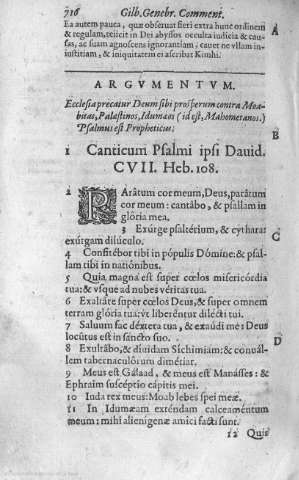 716 Gilb. Genebr. Comment.
Ea autem pauca, quæ obseruat fieri extra hunc ordinem
& regulam, reiicit in Dei abyssos occulta iudicia & cau-
sas, ac suam agnoscens ignorantiam; cauet ne vllam in-
iustitiam, & iniquitatem ei ascribat Kimhi.
A
ARGVMENTVM.
Ecclesia precatur Deum sibi prosperum contra Moa-
bitas, Palæstinos, Idumæos (id est, Mahometanos.)
Psalmus est Propheticus.
B
1 Canticum Psalmi ipsi Dauid.
CVII. Heb. 108.
2 PArâtum cor meum, Deus, parâtum
cor meum: cantâbo, & psallam in
glória mea.
3 Exúrge psaltérium, & cythara:
exúrgam dilúculo.
C
4 Confitébor tibi in pópulis Dómine: & psal-
lam tibi in natiónibus.
5 Quia magna est super cœlos misericórdia
tua: & vsque ad nubes véritas tua.
6 Exaltâre super cœlos Deus, & super omnem
terram glória tua: vt liberéntur dilécti tui.
7 Saluum fac déxtera tua, & exaúdi me: Deus
locûtus est in sancto suo.
D
8 Exultâbo, & diuidam Síchimiam: & conuâl-
lem tabernaculórum dimétiar.
9 Meus est Gálaad, & meus est Manásses: &
Ephraim suscéptio cápitis mei.
10 Iuda rex meus: Moab lebes spei meæ.
11 In Idumæam exténdam calceaméntum
meum: mihi alienigenæ amici facti sunt.
12 Quis